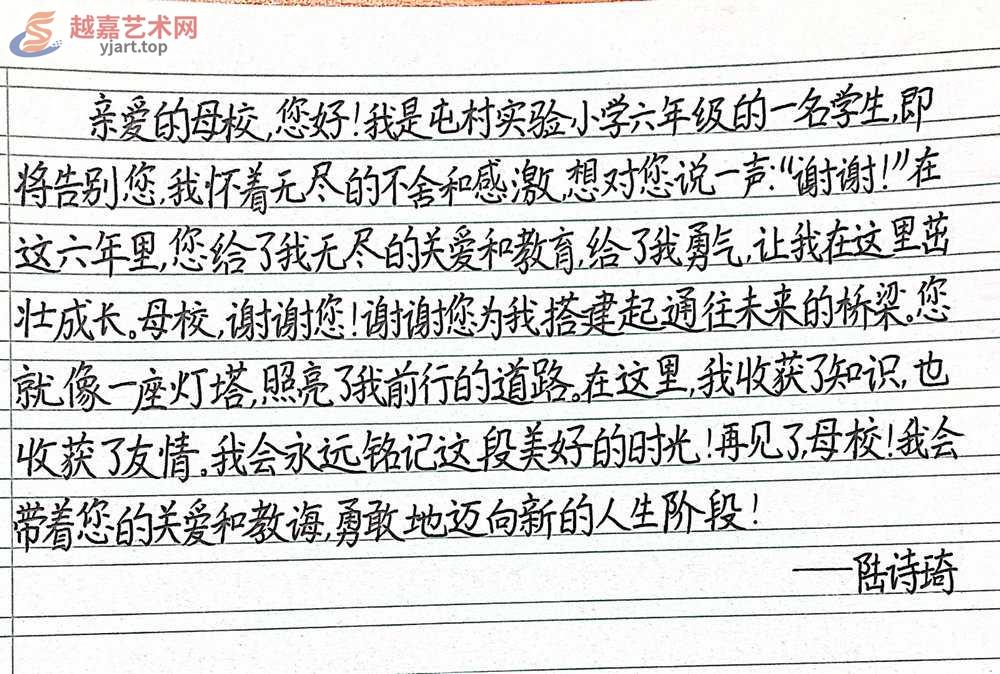 越嘉艺术网
yjart.top
亲爱的母校,您好!我是屯村实验小学六年级的一名学生,即
将告别您,我怀着无尽的不舍和感激,想对您说一声:“谢谢!”在
这六年里,您给了我无尽的关爱和教育,给了我勇气,让我在这里茁
壮成长。母校,谢谢您!谢谢您为我搭建起通往未来的桥梁。您
就像一座灯塔,照亮了我前行的道路。在这里,我收获了知识,也
收获了友情。我会永远铭记这段美好的时光!再见了,母校!我会
带着您的关爱和教诲,勇敢地迈向新的人生阶段!
——陆诗琦